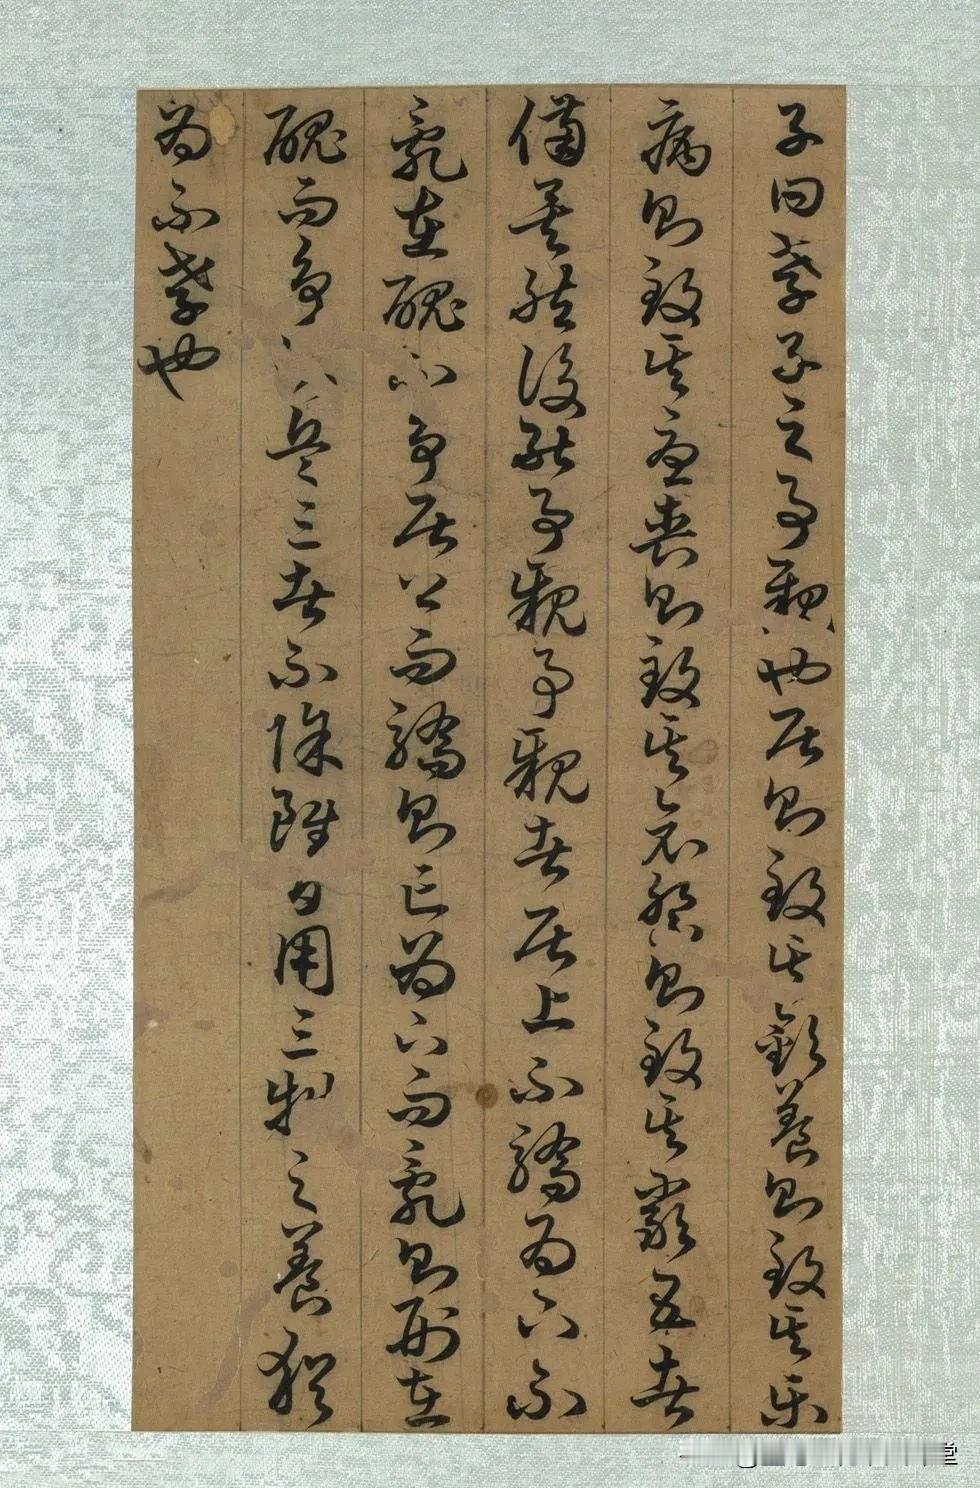 子曰孝子之事親也居則致其欽養則致其樂
病則致其憂喪則致其哀祭則致其嚴五者
備矣然後能事親事親者居上不驕為下不
亂在醜不爭居上而驕則亡為下而亂則刑在
醜而爭則兵三者不除雖日用三牲之養猶
為不孝也